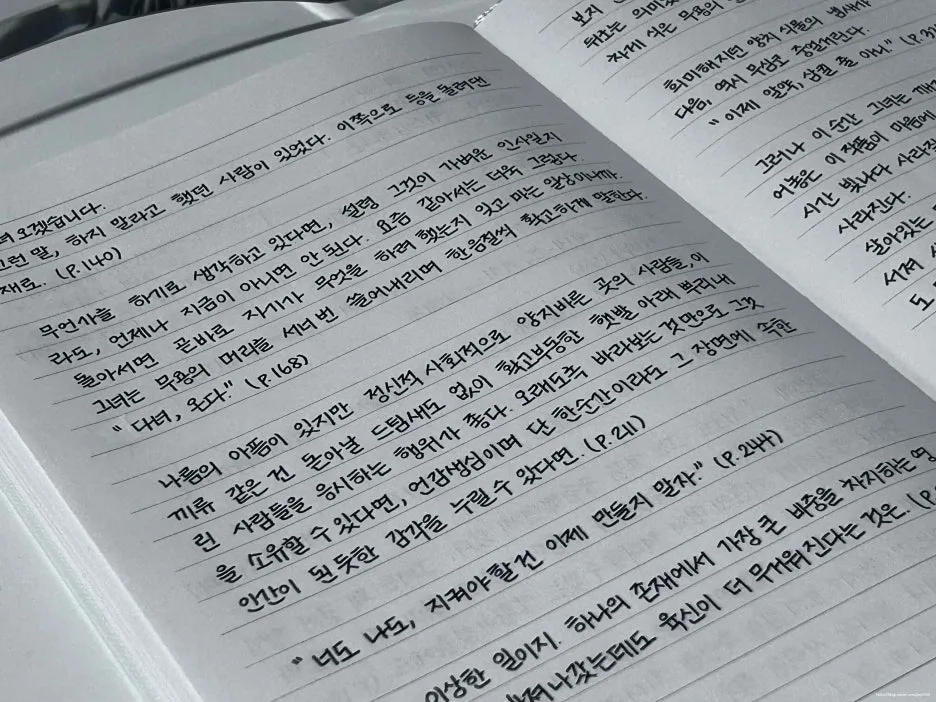 녀오겠습니다.
그런 말, 하지 말라고 했던 사람이 있었다. 이쪽으로 등을 돌려댄
채로. (P.140)
무언가를 하기로 생각하고 있다면, 설령 그것이 가벼운 인사일지
라도, 언제나 지금이 아니면 안 된다. 요즘 같아서는 더욱 그렇다.
돌아서면 곧바로 자기가 무엇을 하려 했는지 잊고 마는 일상이니까.
그녀는 무용의 머리를 서너번 쓸어내리며 한음절씩 확고하게 말한다.
" 다녀, 온다." (P.168)
나름의 아픔이 있지만 정신적 사회적으로 양지바른 곳의 사람들, 이
끼류 같은 건 돋아날 드팀새도 없이 확고부동한 햇발 아래 뿌리내
린 사람들을 응시하는 행위가 좋다. 오래도록 바라보는 것만으로 그것
을 소유할 수 있다면, 언감생심이며 단 한순간이라도 그 장면에 속한
인간이 된 듯한 감각을 누릴 수 있다면. (P.211)
" 너도 나도, 지켜야 할 건 이제 만들지 말자." (P.244)
이상한 일이지. 하나의 존재에서 가장 큰 비중을 차지하는 영
져나갔는데도 육신이 더 무거워진다는 것은. (P.
보지
뒤호는 의미있
차게 식은 무용의
희미해지던 양지 식물의
다음, 역시 무심코 중얼거린다.
" 이제 알약, 삼킬 줄 아니." (P.
그러나 이 순간 그녀는 깨
어놓은 이 작품이 마음에
시간 빛나다 사라질
사라진다.
살아있는
서져
도